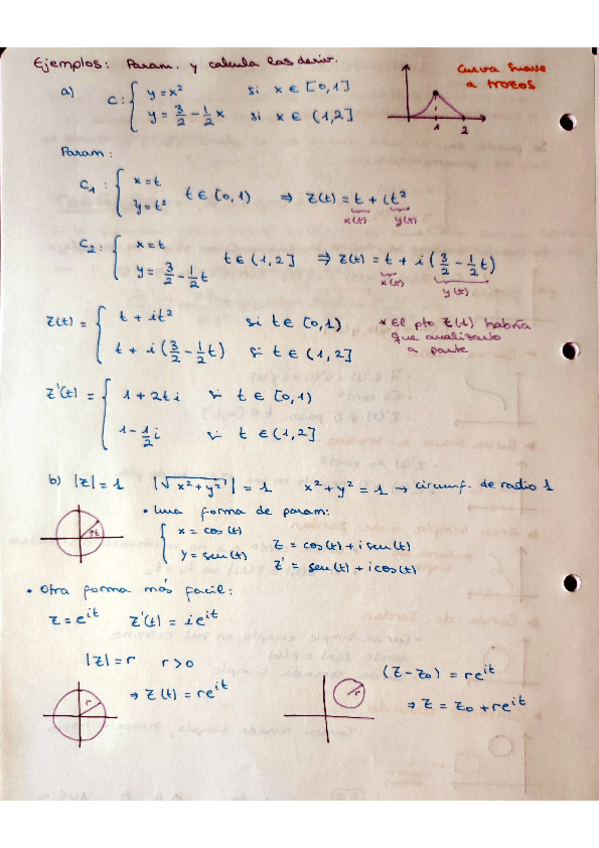 Ejemplos: Param. y calcula las deriv.
Curva suave
a trozos
a) C: { y = x² si x ∈ [0,1]
y = 3/2 - 1/2 x si x ∈ (1,2]
1 2
Param:
C₁: { x = t
y = t² t ∈ [0,1) ⇒ z(t) = t + it²
x(t) y(t)
C₂: { x = t
y = 3/2 - 1/2 t t ∈ (1,2] ⇒ z(t) = t + i (3/2 - 1/2 t)
x(t) y(t)
z(t) = { t + it² si t ∈ [0,1)
t + i (3/2 - 1/2 t) si t ∈ (1,2]
* El pto z(1) habría
que analizarlo
a parte
z'(t) = { 1 + 2ti si t ∈ [0,1)
1 - 1/2 i si t ∈ (1,2]
b) |z| = 1 |√x²+y²| = 1 x²+y² = 1 → circunf. de radio 1
t
• Una forma de param:
{ x = cos(t)
y = sen(t) z = cos(t) + i sen(t)
z' = sen(t) + i cos(t)
• Otra forma más facil:
z = e^it z'(t) = ie^it
|z| = r r > 0
⇒ z(t) = re^it
r
r
(z - z₀) = re^it
⇒ z = z₀ + re^it